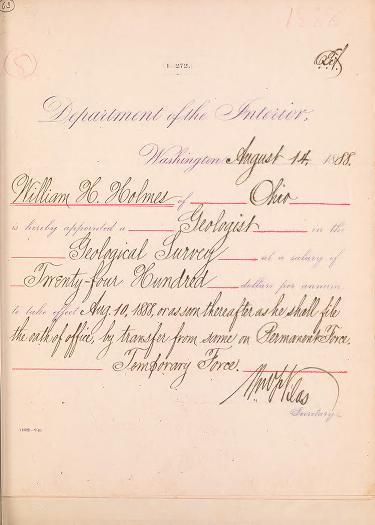 1-272.
Department of the Interior,
Washington August 14, 1888.
William H. Holmes of Ohio
is hereby appointed a Geologist in the
Geological Survey at a salary of
Twenty-four Hundred dollars per annum
to take effect Aug. 10, 1888, or as soon thereafter as he shall file
the oath of office, by transfer from same on Permanent Force.
Temporary Force
Wm F Vilas
Secretary.